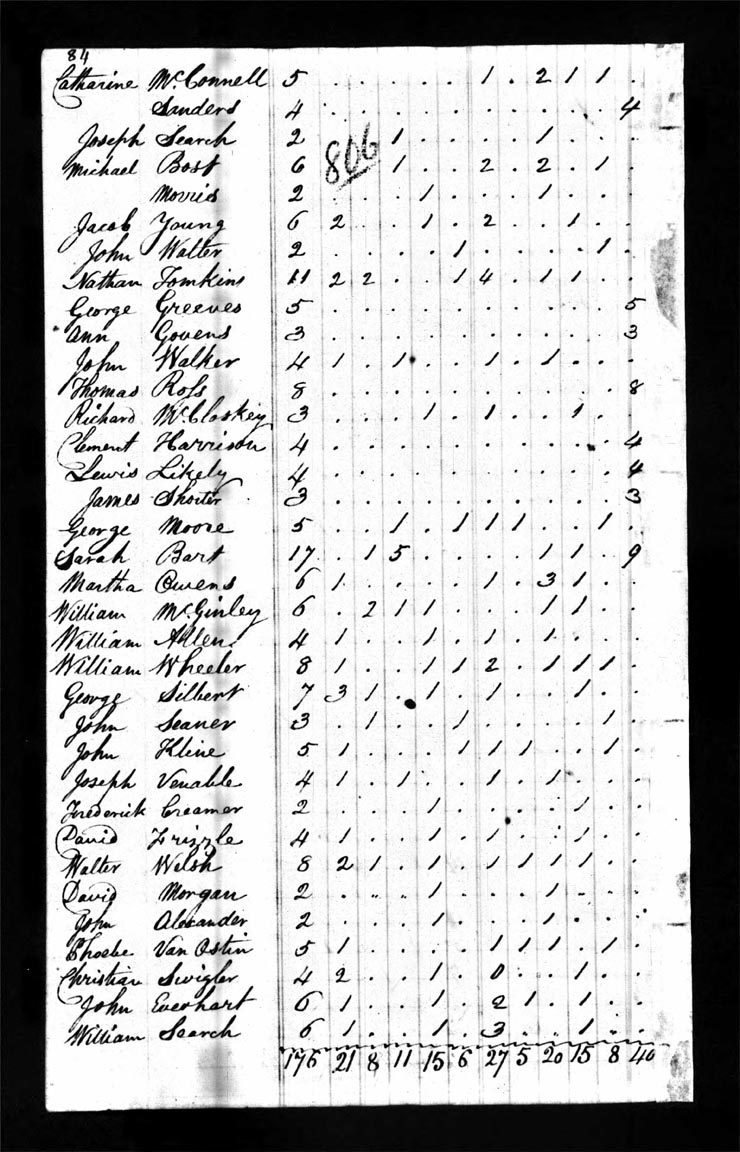 84
Catharine McConnell 5 . . . . . . 1 . 2 1 1 .
Sanders 4 . . . . . . . . . . . 4
Joseph Search 2 . . 1 . . . . 1 . . .
806
Michael Bost 6 . . 1 . . 2 . 2 . 1 .
Morris 2 . . . 1 . . . 1 . . .
Jacob Young 6 2 . . 1 . 2 . . 1 . .
John Walter 2 . . . . 1 . . . . 1 .
Nathan Tomkins 11 2 2 . . 1 4 . 1 1 . .
George Greeves 5 . . . . . . . . . . 5
Ann Govens 3 . . . . . . . . . . 3
John Walker 4 1 . 1 . . 1 . 1 . . .
Thomas Ross 8 . . . . . . . . . . 8
Richard McCloskey 3 . . . 1 . 1 . . 1 . .
Clement Harrison 4 . . . . . . . . . . 4
Lewis Likely 4 . . . . . . . . . . 4
James Shorter 3 . . . . . . . . . . 3
George Moore 5 . . 1 . 1 1 1 . . 1 .
Sarah Bart 17 . 1 5 . . . . 1 1 . 9
Martha Owens 6 1 . . . . 1 . 3 1 . .
William McGinley 6 . 2 1 1 . . . 1 1 . .
William Allen 4 1 . . 1 . 1 . 1 . . .
William Wheeler 8 1 . . 1 1 2 . 1 1 1 .
George Silbert 7 3 1 . 1 . 1 . . 1 . .
John Seaner 3 . 1 . . 1 . . . . 1 .
John Kline 5 1 . . . 1 1 1 . . 1 .
Joseph Venable 4 1 . 1 . . 1 . 1 . . .
Frederick Creamer 2 . . . 1 . . . . 1 . .
David Frizzle 4 1 . . 1 . 1 . . 1 . .
Walter Welsh 8 2 1 . 1 . 1 1 1 1 . .
David Morgan 2 . . . 1 . . . 1 . . .
John Alexander 2 . . . 1 . . . 1 . . .
Phoebe Van Ostin 5 1 . . . . 1 1 1 . 1 .
Christian Swigler 4 2 . . 1 . 0 . . 1 . .
John Everhart 6 1 . . 1 . 2 1 . 1 . .
William Search 6 1 . . 1 . 3 . . 1 . .
176 21 8 11 15 6 27 5 20 15 8 40